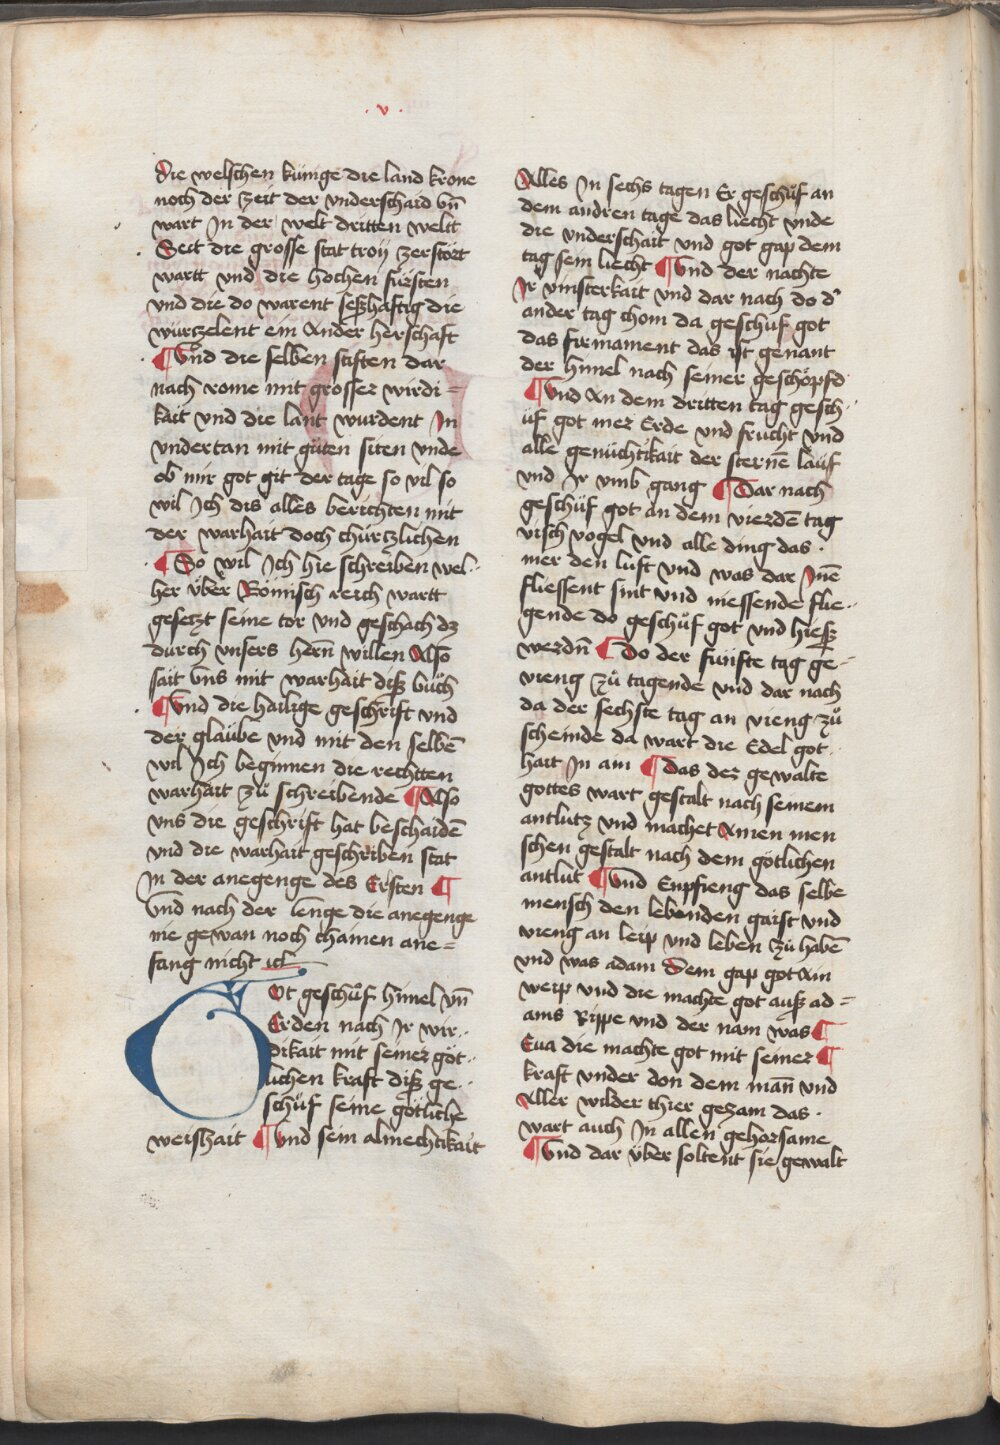 . v .
die welschen künge die land krone
noch der zeit der vnderschaid vn̄
wart Jn der welt dritten weltt
Seit die grosse stat troij zerstört
wartt vnd die hochen fürsten
vnd die do warent seßhaftig die
würtzelent ein Ander herschaft
¶ Vnd die selben stiften dar
nach rome mit grosser wirdi=
kait vnd die lant wurdent Jn
vndertan mit gůten siten vnde
ob mir got git der tage so vil so
wil Jch dis alles berichten mit
der warhait doch chürtzlichen
¶ So wil Jch hie schreiben wel-
her über Römisch reich wartt
gesetzt seine tor vnd geschach dz
durch vnsers herrn willen Also
sait vns mit warhait diß bůch
¶ Vnd die hailige geschrift vnd
der glaube vnd mit den selbē
wil Jch beginnen die rechtten
warhait zů schreibende ¶ Also
vns die geschrift hat beschaidē
vnd die warhait geschriben stat
Jn der anegenge des Ersten ¶
Vnd nach der lenge die anegenge
nie gewan noch chainen ane=
fang nicht
Got geschůf himel vn̄
Erden nach Jr wir-
dikait mit seiner göt-
lichen kraft diß ge-
schůf seine götliche
weishait ¶ Vnd sein almechtikait
Alles Jn sechs tagen Er geschůf an
dem andren tage das liecht vnde
die vnderschait vnd got gap dem
tag sem liecht ¶ Vnd der nachte
Jr vinsterkait vnd dar nach do d'
ander tag chom da geschuf got
das firmament das ist genant
der himel nach seiner geschöpfd
¶ Vnd An dem dritten tag gesch-
uf got mer Erde vnd frucht vnd
alle genüchtikait der sternē läuf
vnd Jr vmb gang ¶ Dar nach
geschůf got an dem vierdē tag
visch vogel vnd alle ding das
mer den luft vnd was dar Jnē
fliessent sint vnd niessende flie-
gende do geschůf got vnd hieß
werdn̄ ¶ Do der fünfte tag ge-
vieng zů tagende vnd dar nach
da der sechste tag an vieng zů
scheinde da wart die Edel got-
hait Jn ain ¶ das der gewalte
gottes wart gestalt nach seinem
antlutz vnd machet Ainen men
schen gestalt nach dem götlichen
antlut ¶ Vnd Enpfieng das selbe
mensch den lebenden gaist vnd
vieng an leip vnd leben zů habē
vnd was adam dem gap got Ain
weip vnd die machte got auß ad=
ams Rippe vnd der nam was ¶
Eua die machte got mit seiner ¶
kraft vnder don dem man̄ vnd
Aller wilder thier gezam das
wart auch Jn allen gehorsame
¶ Vnd dar über soltent sie gewalt